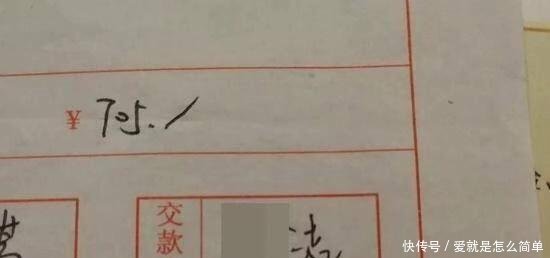 ¥ 705./
交款
快传号 / 爱就是怎么简单